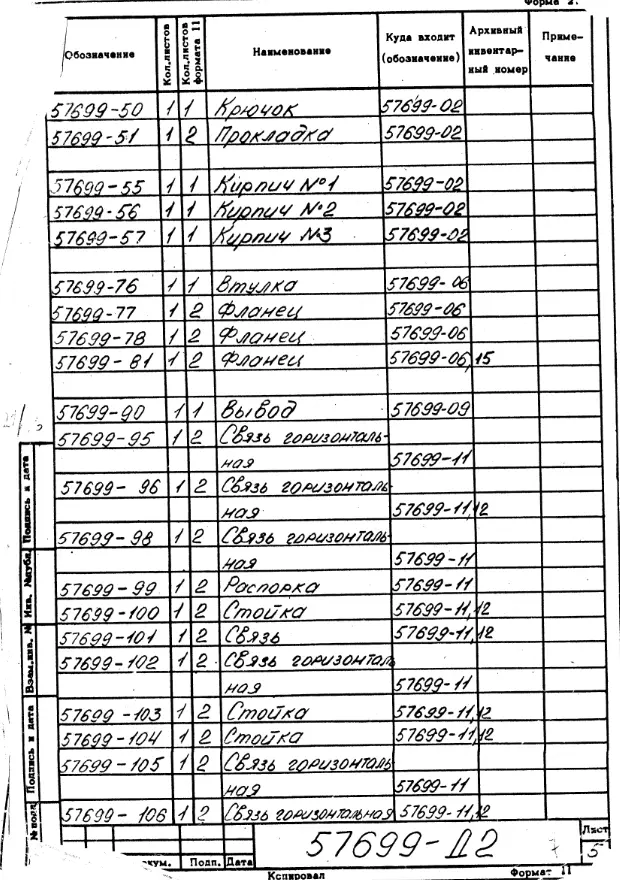 Форма 2.
Обозначение Кол.листов Кол.листов формата 11 Наименование Куда входит (обозначение) Архивный инвентар- ный номер Приме- чание
57699-50 1 1 Крючок 57699-02
57699-51 1 2 Прокладка 57699-02
57699-55 1 1 Кирпич №1 57699-02
57699-56 1 1 Кирпич №2 57699-02
57699-57 1 1 Кирпич №3 57699-02
57699-76 1 1 Втулка 57699-06
57699-77 1 2 Фланец 57699-06
57699-78 1 2 Фланец 57699-06
57699-81 1 2 Фланец 57699-06,15
57699-90 1 1 Вывод 57699-09
57699-95 1 2 Связь горизонталь-
ная 57699-11
57699-96 1 2 Связь горизонталь-
ная 57699-11,12
57699-98 1 2 Связь горизонталь-
ная 57699-11
57699-99 1 2 Распорка 57699-11
57699-100 1 2 Стойка 57699-11,12
57699-101 1 2 Связь 57699-11,12
57699-102 1 2 Связь горизонталь
ная 57699-11
57699-103 1 2 Стойка 57699-11,12
57699-104 1 2 Стойка 57699-11,12
57699-105 1 2 Связь горизонталь
ная 57699-11
57699-106 1 2 Связь горизонтальная 57699-11,12
Подпись и дата
Инв. №дубл.
Взам.инв. №
Подпись и дата
№ подл
57699-Д2
Лист
5
кум. Подп. Дата
Копировал Формат 11